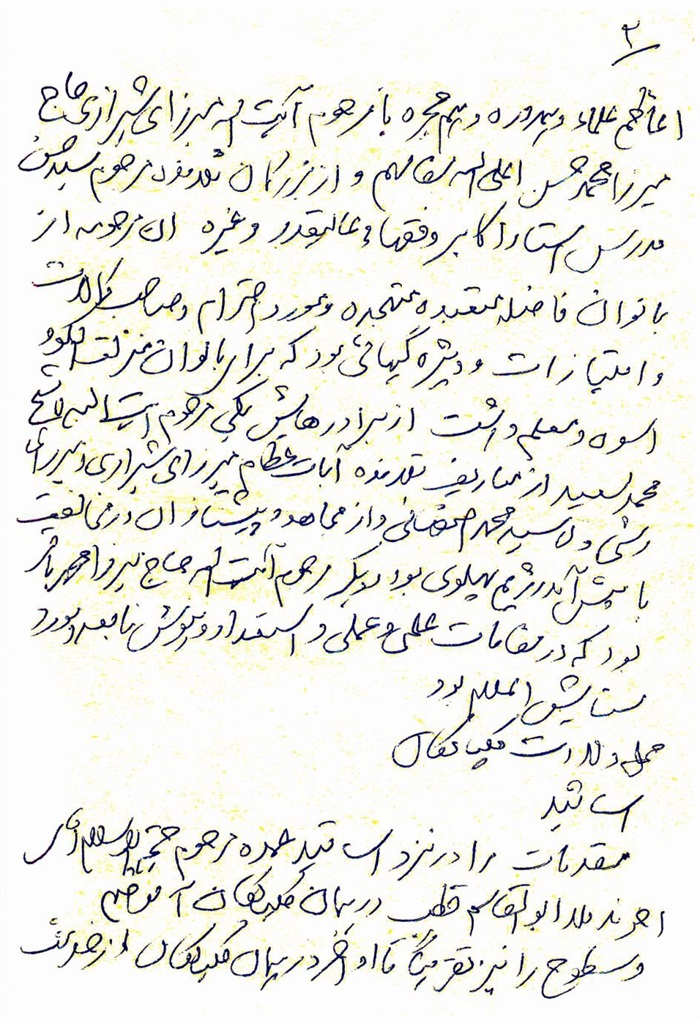 ۲
اعاظم علماء و همدوره و هم حجره با مرحوم آیت اله میرزای شیرازی حاج
میرزا محمد حسن اعلی اله مقامهم و از بزرگان تلامذه مرحوم سید حسن
مدرس استاد اکابر و فقهاء عالیقدر و غیره این مرحومه از
بانوان فاضله متعبده متهجده و مورد احترام و صاحب کمالات
و امتیازات و ویژه گیهائی بود که برای بانوان منزلت الگو و
اسوه و معلم داشت از برادرهایش یکی مرحوم آیت اله شیخ
محمد سعید از معاریف تلامذه آیات عظام میرزای شیرازی و میرزای
رشتی و سید محمد اصفهانی و از مجاهد و پیشتازان در مخالفت
با پیش آمد رژیم پهلوی بود دیگر مرحوم آیت اله حاج میرزا محمد باقر
بود که در مقامات علمی و عملی و استعداد و هوش نابغه و مورد
ستایش اعلام بود
محل ولادت گلپایگان
اساتید
مقدمات را در نزد اساتید عمده مرحوم حجة الاسلام آقای
آخوند ملا ابوالقاسم قطب در همان گلپایگان آموختم
و سطوح را نیز تقریباً تا اواخر در همان گلپایگان از خدمت